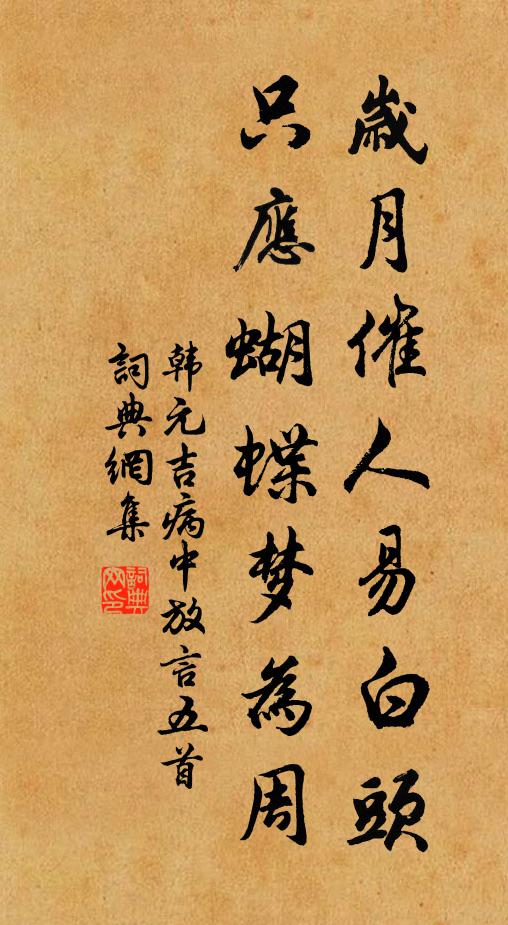 歲月催人易白頭
只應蝴蝶梦為周
韩元吉病中放言五首
詞典網集
詞典
网印